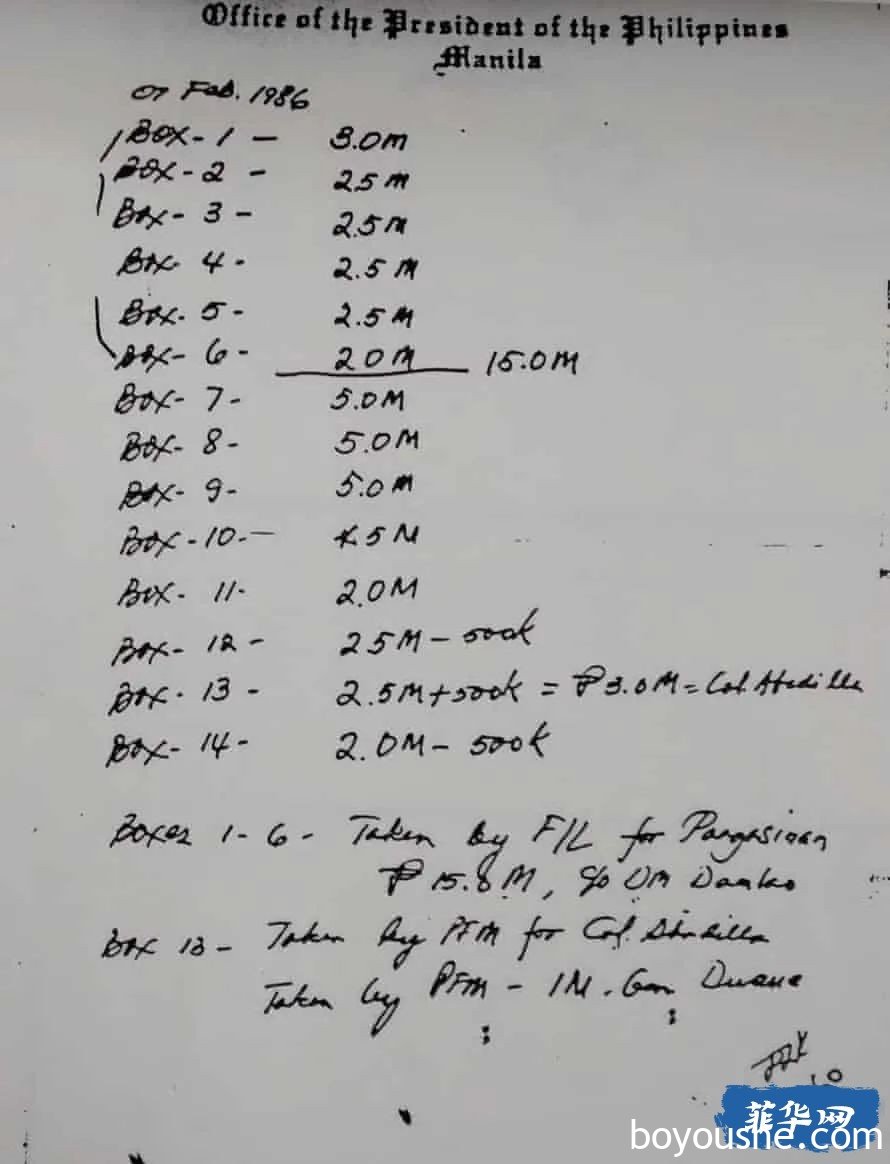 Office of the President of the Philippines
Manila
07 Feb. 1986
Box - 1 - 3.0M
Box - 2 - 2.5M
Box - 3 - 2.5M
Box 4 - 2.5M
Box - 5 - 2.5M
Box - 6 - 2.0M 15.0M
Box - 7 - 5.0M
Box - 8 - 5.0M
Box - 9 - 5.0M
Box - 10 - 5M
Box - 11 - 2.0M
Box - 12 - 2.5M - 500k
Box - 13 - 2.5M + 500k = ₱3.0M = Col.
Box - 14 - 2.0M - 500k
Boxes 1 - 6 - Taken by F/L for Pangasinan
₱ 15.0M, c/o
Box 13 - Taken by PFM for Col.
Taken by PFM - 1M. Gen
菲华网
boyoushe.com